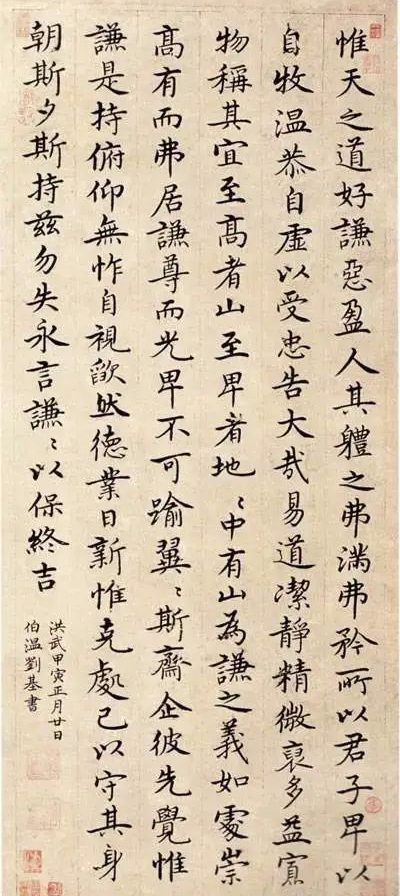 惟天之道好謙惡盈人其軆之弗滿弗矜所以君子卑以
自牧溫恭自虛以受忠告大哉易道潔靜精微裒多益寡
物稱其宜至髙者山至卑者地ミ中有山為謙之義如處崇
髙有而弗居謙尊而光卑不可踰翼ミ斯齋企彼先覺惟
謙是持俯仰無怍自視欿然德業日新惟克處己以守其身
朝斯夕斯持茲勿失永言謙ミ以保終吉
洪武甲寅正月廿日
伯溫劉基書